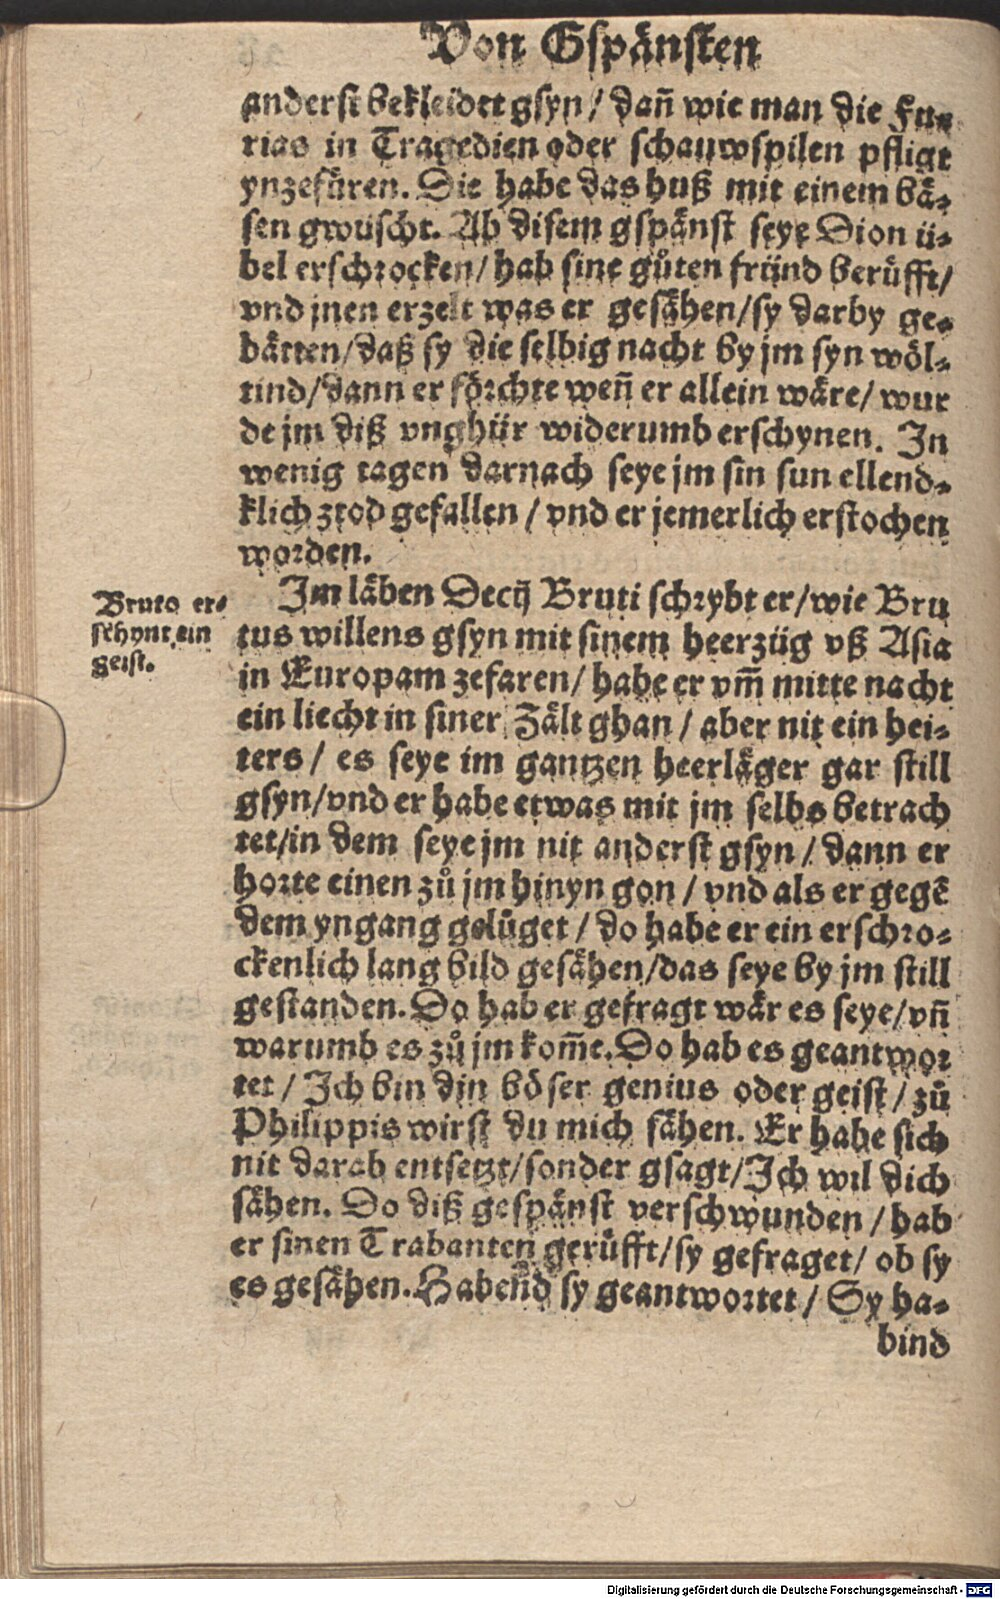 Von Gspänsten
anderst bekleidet gsyn / dañ wie man die Fu-
rias in Tragedien oder schauwspilen pfligt
ynzefüren. Die habe das huß mit einem bä-
sen gwüscht. Ab disem gspänst seye Dion ü-
bel erschrocken / hab sine gůten fründ berüfft /
vnd jnen erzelt was er gesähen / sy darby ge-
bätten / daß sy die selbig nacht by jm syn wöl-
tind / dann er förchte weñ er allein wäre / wur
de jm diß vnghür widerumb erschynen. In
wenig tagen darnach seye jm sin sun ellend-
klich ztod gefallen / vnd er jemerlich erstochen
worden.
Bruto er-
schynt ein
geist.
Im läben Decij Bruti schrybt er / wie Bru
tus willens gsyn mit sinem heerzüg vß Asia
in Europam zefaren / habe er vm̃ mitte nacht
ein liecht in siner Zält ghan / aber nit ein hei-
ters / es seye im gantzen heerläger gar still
gsyn / vnd er habe etwas mit jm selbs betrach
tet / in dem seye jm nit anderst gsyn / dann er
horte einen zů jm hinyn gon / vnd als er gegẽ
dem yngang gelůget / do habe er ein erschro-
ckenlich lang bild gesähen / das seye by jm still
gestanden. Do hab er gefragt wär es seye / vñ
warumb es zů jm kom̃e. Do hab es geantwor
tet / Ich bin din böser genius oder geist / zů
Philippis wirst du mich sähen. Er habe sich
nit darab entsetzt / sonder gsagt / Ich wil dich
sähen. Do diß gespänst verschwunden / hab
er sinen Trabanten gerüfft / sy gefraget / ob sy
es gesähen. Habend sy geantwortet / Sy ha-
bind
Digitalisierung gefördert durch die Deutsche Forschungsgemeinschaft - DFG